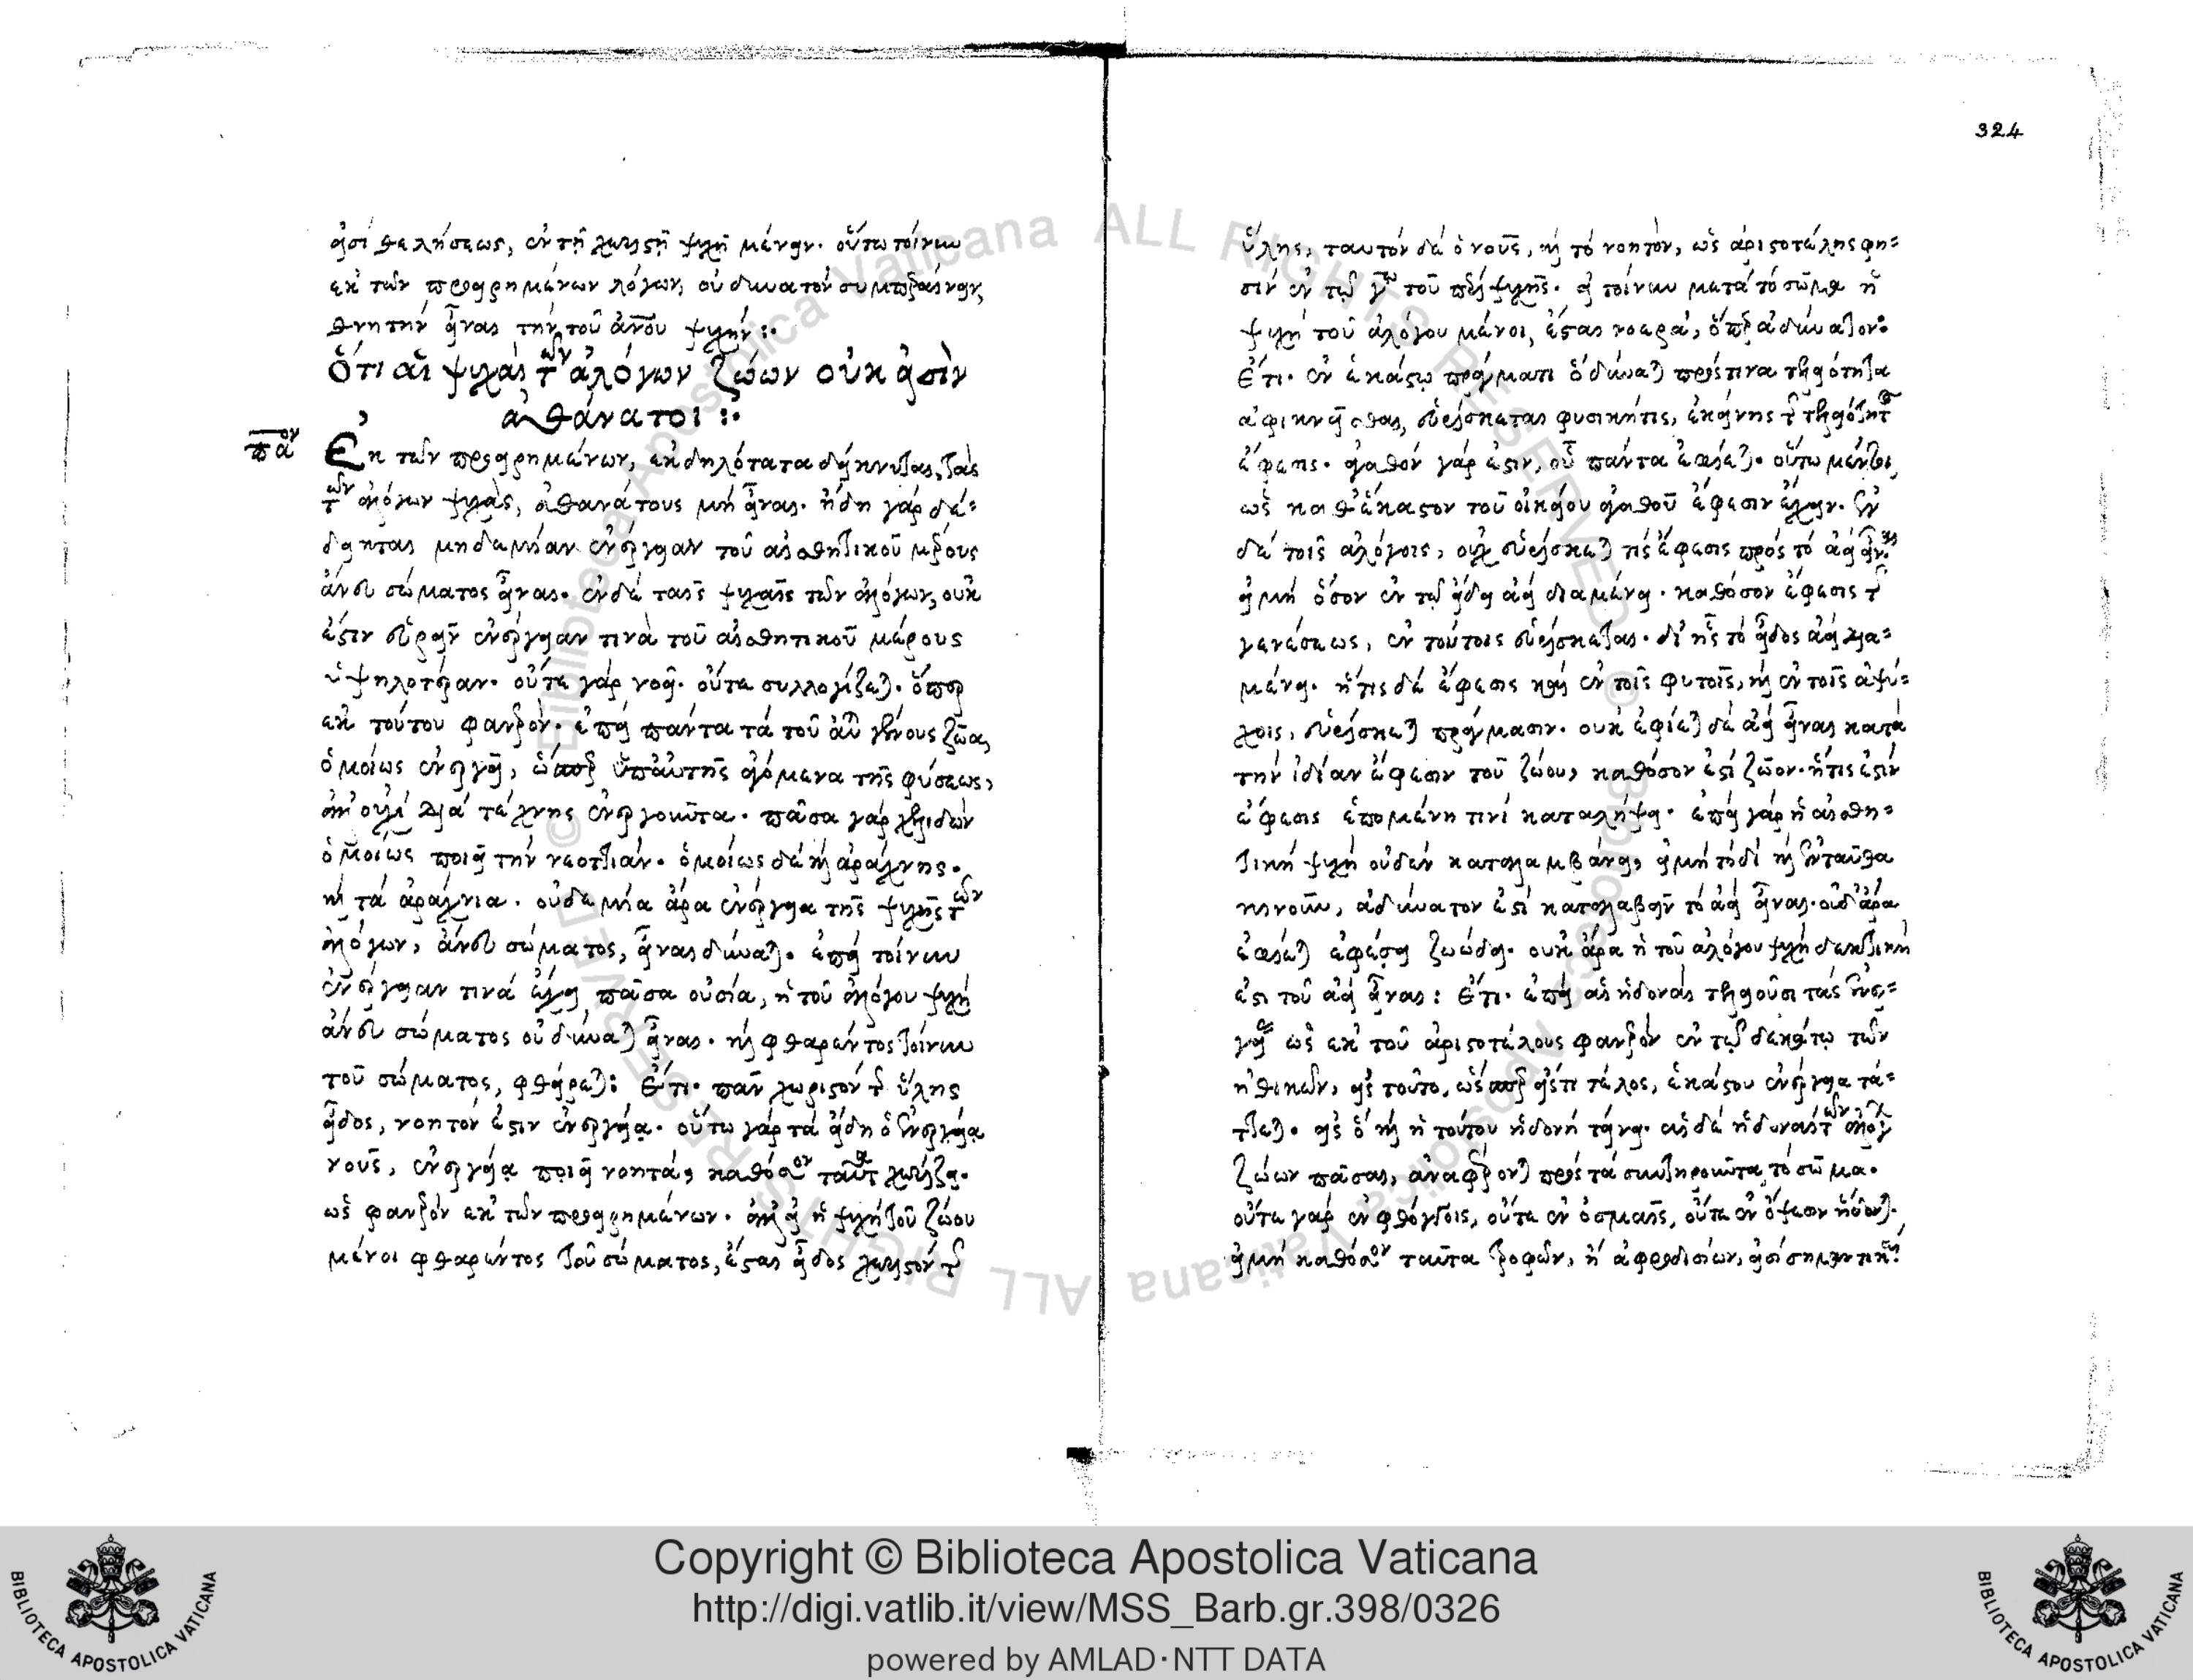 324
εἰσὶ θελήσεως, ἐν τῇ χωριστῇ ψυχῇ μένειν. οὕτω τοίνυν
ἐκ τῶν προειρημένων λόγων, οὐ δυνατὸν συμπεραίνειν,
θνητὴν εἶναι τὴν τοῦ ἀνου ψυχήν :·
ὅτι αἱ ψυχαὶ τῶν ἀλόγων ζώων οὐκ εἰσὶν
ἀθάνατοι :·
Ἐκ τῶν προειρημένων, ἐκδηλότατα δείκνυται, τὰς
τῶν ἀλόγων ψυχὰς, ἀθανάτους μὴ εἶναι. ἤδη γὰρ δέ-
δεικται μηδεμίαν ἐνέργειαν τοῦ αἰσθητικοῦ μέρους
ἄνευ σώματος εἶναι. ἐν δὲ ταῖς ψυχαῖς τῶν ἀλόγων, οὐκ
ἔστιν εὑρεῖν ἐνέργειαν τινὰ τοῦ αἰσθητικοῦ μέρους
ὑψηλοτέραν. οὔτε γὰρ νοεῖ. οὔτε συλλογίζεται. ὅπερ
ἐκ τούτου φανερόν. ἐπεὶ πάντα τὰ τοῦ αὐτοῦ γένους ζῶα,
ὁμοίως ἐνεργεῖ, ὥσπερ ὑπ' αὐτῆς ἀγόμενα τῆς φύσεως,
ἀλλ' οὐχὶ διὰ τέχνης ἐνεργοῦντα. πᾶσα γὰρ χελιδὼν
ὁμοίως ποιεῖ τὴν νεοττιάν. ὁμοίως δὲ καὶ ἀράχνης.
καὶ τὰ ἀράχνια. οὐδεμία ἄρα ἐνέργεια τῆς ψυχῆς τῶν
ἀλόγων, ἄνευ σώματος, εἶναι δύναται. ἐπεὶ τοίνυν
ἐνέργειαν τινὰ ἔχει πᾶσα οὐσία, ἡ τοῦ ἀλόγου ψυχὴ
ἄνευ σώματος οὐ δύναται εἶναι. καὶ φθαρέντος τοίνυν
τοῦ σώματος, φθείρεται: Ἔτι. πᾶν χωριστὸν τῆς ὕλης
εἶδος, νοητόν ἐστιν ἐνεργείᾳ. οὕτω γὰρ τὰ εἴδη ὁ ἐνεργείᾳ
νοῦς, ἐνεργείᾳ ποιεῖ νοητὰ, καθόσον ταῦτα χωρίζει.
ὡς φανερὸν ἐκ τῶν προειρημένων. ἀλλ' εἰ ἡ ψυχὴ τοῦ ζώου
μένοι φθαρέντος τοῦ σώματος, ἔσται εἶδος χωριστὸν τῆς
ὕλης, ταυτὸν δὲ ὁ νοῦς, καὶ τὸ νοητὸν, ὡς ἀριστοτέλης φη-
σὶν ἐν τῷ γῳ τοῦ περὶ ψυχῆς. εἰ τοίνυν μετὰ τὸ σῶμα ἡ
ψυχὴ τοῦ ἀλόγου μένοι, ἔσται νοερὰ, ὅπερ ἀδύνατον:
Ἔτι. ἐν ἑκάστῳ πράγματι ὃ δύναται πρός τινα τελειότητα
ἀφικνεῖσθαι, εὑρίσκεται φυσική τις, ἐκείνης τῆς τελειότητος
ἔφεσις. ἀγαθὸν γάρ ἐστιν, οὗ πάντα ἐφίεται. οὕτω μέντοι,
ὡς καθ' ἕκαστον τοῦ οἰκείου ἀγαθοῦ ἔφεσιν ἔχειν. ἐν
δὲ τοῖς ἀλόγοις, οὐχ εὑρίσκεται τὶς ἔφεσις πρὸς τὸ ἀεὶ εἶναι.
εἰ μὴ ὅσον ἐν τῷ εἴδει ἀεὶ διαμένει. καθόσον ἔφεσις τῆς
γενέσεως, ἐν τούτοις εὑρίσκεται. δι' ἧς τὸ εἶδος ἀεὶ δια-
μένει. ἥτις δὲ ἔφεσις καὶ ἐν τοῖς φυτοῖς, καὶ ἐν τοῖς ἀψύ-
χοις, εὑρίσκεται πράγμασιν. οὐκ ἐφίεται δὲ ἀεὶ εἶναι κατὰ
τὴν ἰδίαν ἔφεσιν τοῦ ζώου, καθόσον ἐστὶ ζῶον. ἥτις ἐστὶν
ἔφεσις ἑπομένη τινὶ καταλήψει. ἐπεὶ γὰρ ἡ αἰσθη-
τικὴ ψυχὴ οὐδὲν καταλαμβάνει, εἰ μὴ τόδε καὶ ἐνταῦθα
καὶ νοῦν, ἀδύνατόν ἐστι καταλαβεῖν τὸ ἀεὶ εἶναι. οὐδ' ἄρα
ἐφίεται ἐφέσει ζωώδει. οὐκ ἄρα ἡ τοῦ ἀλόγου ψυχὴ δεκτικὴ
ἐστι τοῦ ἀεὶ εἶναι: Ἔτι. ἐπεὶ αἱ ἡδοναὶ τελειοῦσι τὰς ἐνερ-
γείας ὡς ἐκ τοῦ ἀριστοτέλους φανερὸν ἐν τῷ δεκάτῳ τῶν
ἠθικῶν, εἰς τοῦτο, ὥσπερ εἴς τι τέλος, ἑκάστου ἐνέργεια τά-
ττεται. εἰς ὃ καὶ ἡ τούτου ἡδονὴ τείνει. αἱ δὲ ἡδοναὶ τῶν ἀλόγων
ζώων πᾶσαι, ἀναφέρονται πρὸς τὰ συντηροῦντα τὸ σῶμα.
οὔτε γὰρ ἐν φθόγγοις, οὔτε ἐν ὀσμαῖς, οὔτε ἐν ὄψεσιν ἥδονται.
εἰ μὴ καθόσον ταῦτα τροφῶν, ἢ ἀφροδισίων, εἰσὶ σημαντικὰ
Copyright © Biblioteca Apostolica Vaticana
http://digi.vatlib.it/view/MSS_Barb.gr.398/0326
powered by AMLAD·NTT DATA
BIBLIOTECA APOSTOLICA VATICANA
BIBLIOTECA APOSTOLICA VATICANA